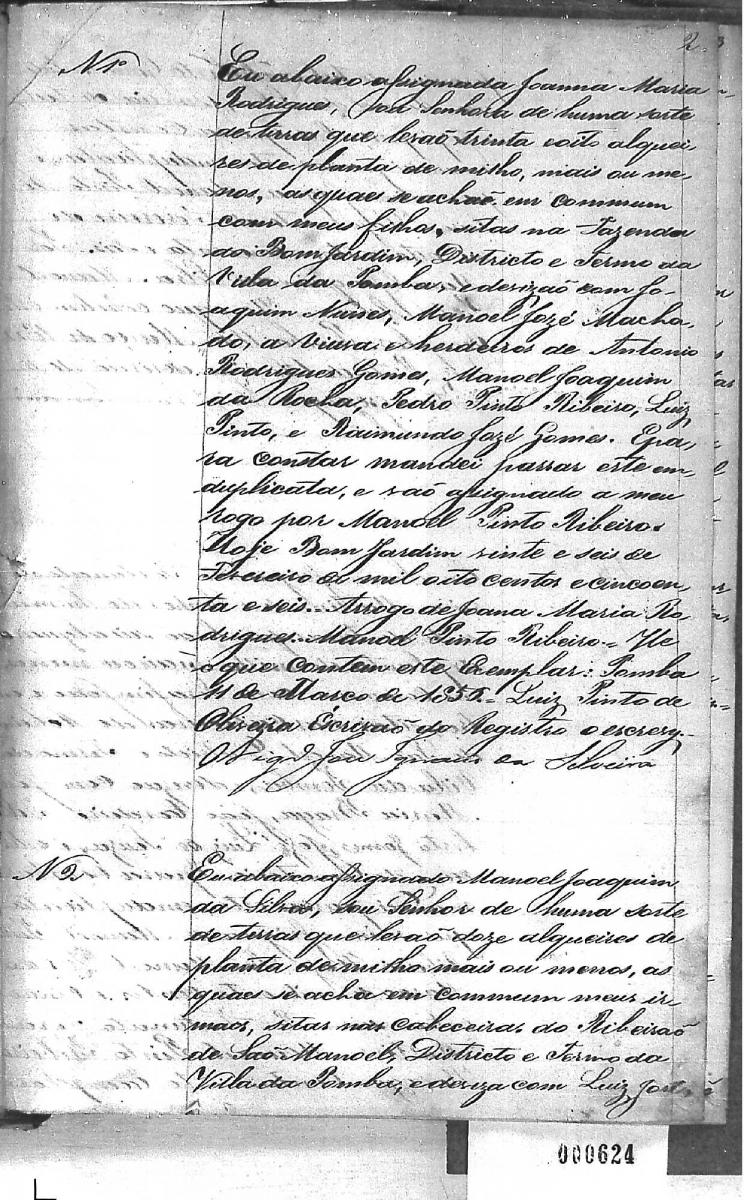 2
N 1º
Eu abaixo assignada Joanna Maria
Rodrigues, sou Senhora de huma sorte
de terras que levaõ trinta e oito alquei-
res de planta de milho, mais ou me-
nos, as quaes se achaõ em commum
com meus filhos, sitas na Fazenda
do Bom Jardim, Districto e Termo da
Villa da Pomba, e devizaõ com Jo-
aquim Nunes, Manoel Jozé Macha-
do, a Viuva e herdeiros de Antonio
Rodrigues Gomes, Manoel Joaquim
da Rocha, Pedro Pinto Ribeiro, Luiz
Pinto, e Raimundo Jozé Gomes. E pa-
ra constar mandei passar este em
duplicata, e vaõ assignado a meu
rogo por Manoel Pinto Ribeiro.
Hoje Bom Jardim vinte e seis de
Fevereiro de mil oito centos e cincoen-
ta e seis. Arrogo de Joana Maria Ro-
drigues. Manoel Pinto Ribeiro = He
o que contem este Exemplar: Pomba
de Março de 1856. Luiz Pinto de
Oliveira Escrivaõ do Registro o escrevy.
Vigrº Jose Ignacio da Silveira
N 2
Eu abaixo assignado Manoel Joaquim
da Silva, sou Senhor de huma sorte
de terras que levaõ doze alqueires de
planta de milho mais ou menos, as
quaes se acha em commum meus ir-
maos, sitas nas cabeceiras do Ribeiraõ
de Saõ Manoel, Districto e Termo da
Villa da Pomba, e deviza com Luiz José
000624